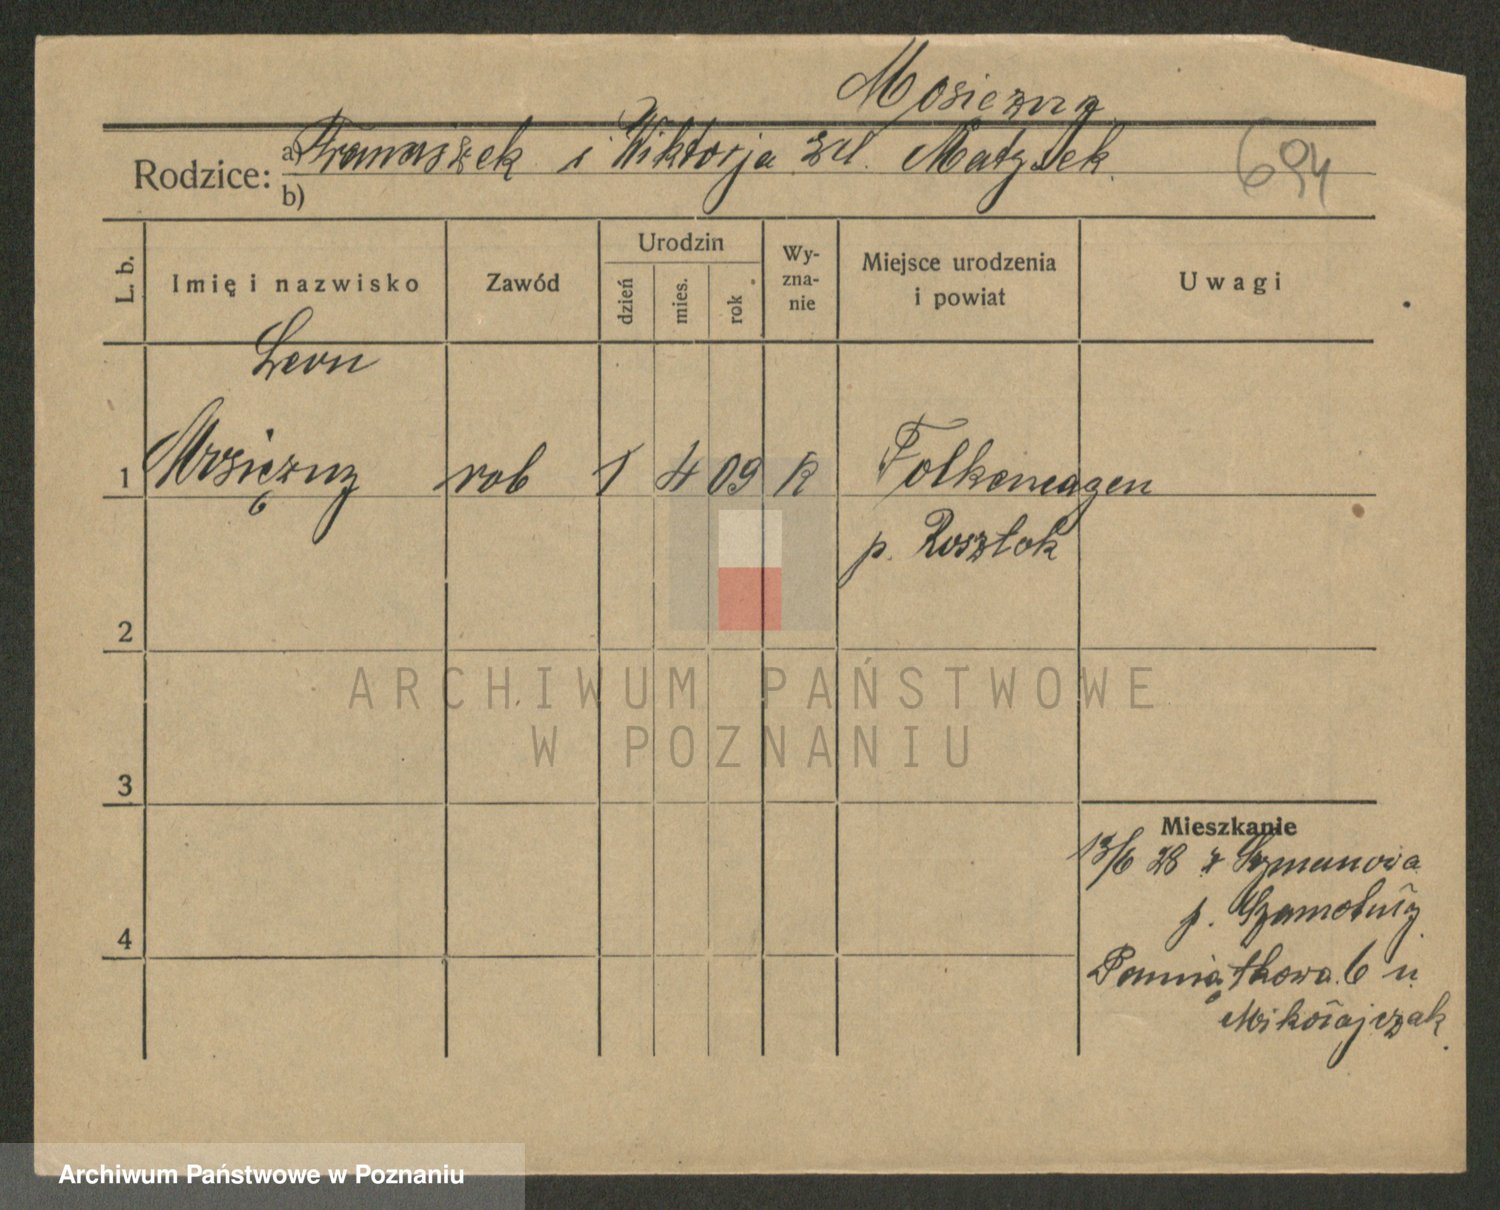 Mosiężny
Rodzice: a) Franciszek i Wiktorja zd. Matysek 694
b)
L. b. Imię i nazwisko Zawód Urodzin dzień mies. rok Wy-zna-nie Miejsce urodzenia i powiat Uwagi
Leon
1 Mosiężny rob 1 4 09 k Folkenhagen
p. Rosztok
2
ARCHIWUM PAŃSTWOWE
W POZNANIU
3
Mieszkanie
13/6 28 z
p. Szamotuły
4
Pamiątkowa 6 u
Mikołajczak
Archiwum Państwowe w Poznaniu